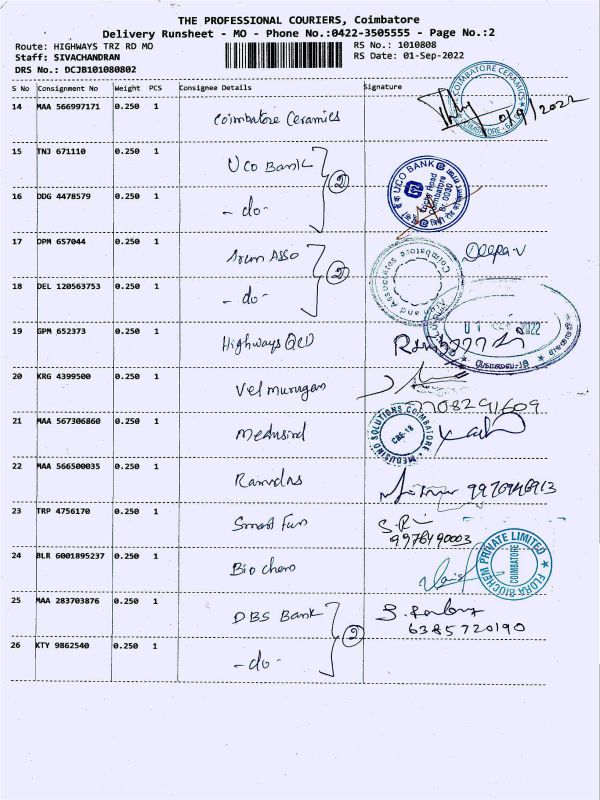 THE PROFESSIONAL COURIERS, Coimbatore
Delivery Runsheet - MO - Phone No.:0422-3505555 - Page No.:2
Route: HIGHWAYS TRZ RD MO
RS No.: 1010808
Staff: SIVACHANDRAN
RS Date: 01-Sep-2022
DRS No.: DCJB101080802
S No Consignment No Weight PCS Consignee Details Signature
14 MAA 566997171 0.250 1 Coimbatore Ceramics
COIMBATORE CERAMICS
15 TNJ 671110 0.250 1 UCO Bank
2
UCO BANK
16 DDG 4478579 0.250 1 - do -
17 DPM 657044 0.250 1 Arun Asso Deepa V
2
18 DEL 120563753 0.250 1 - do -
19 GPM 652373 0.250 1 Highways
2022
கோவை-18
20 KRG 4399500 0.250 1 Vel murugan
7708291609
21 MAA 567306860 0.250 1 Medusind
MEDUSIND SOLUTIONS COIMBATORE
CBE-18
22 MAA 566500035 0.250 1
23 TRP 4756170 0.250 1 Smart Fun
24 BLR 6001895237 0.250 1 Biochem
FLORA BIOCHEM PRIVATE LIMITED
COIMBATORE
25 MAA 283703876 0.250 1 DBS Bank
2
6385720190
26 KTY 9862540 0.250 1 - do -